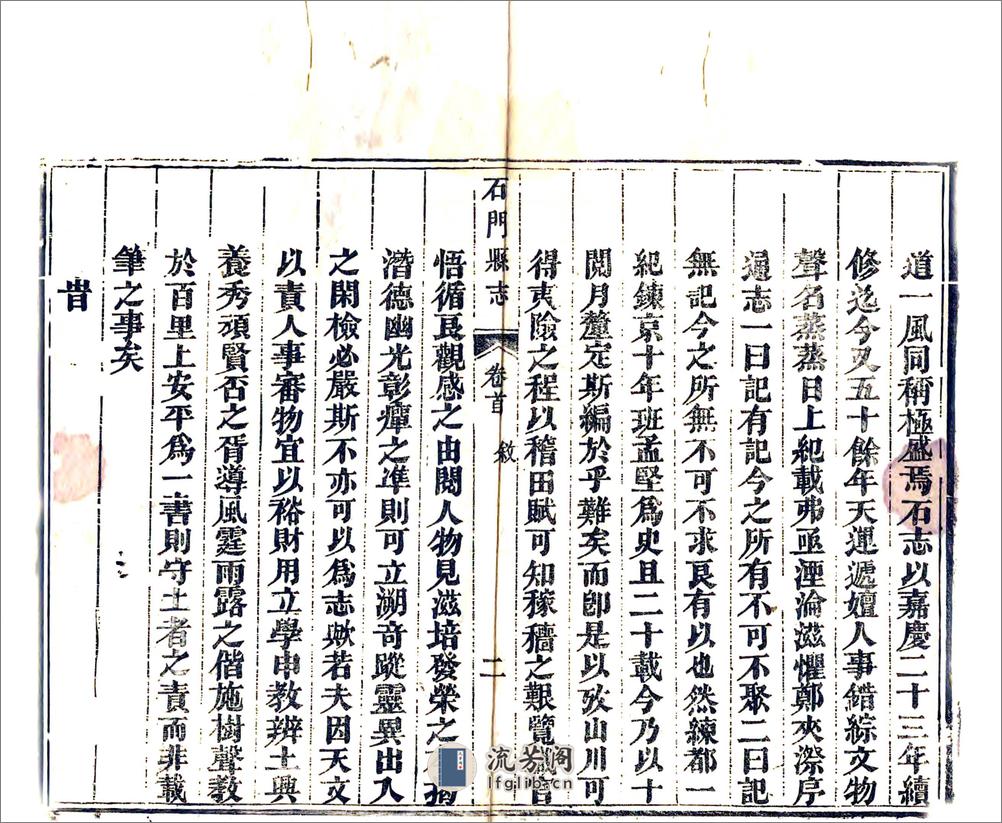 道一風同稱極盛焉石志以嘉慶二十三年續
修迄今又五十餘年天運遞嬗人事錯綜文物
聲名蒸蒸日上紀載弗亟湮淪滋懼鄭夾漈序
通志一曰記有記今之所有不可不聚二曰記
無記今之所無不可不求良有以也然練都一
紀鍊京十年班孟堅爲史且二十載今乃以十
閱月釐定斯編於乎難矣而卽是以攷山川可
得夷險之程以稽田賦可知稼穡之艱覽官
石門縣志 卷首 敘 二
悟循良觀感之由閱人物見滋培發榮之揚
潛德幽光彰癉之準則可立溯奇蹤靈異出入
之閑檢必嚴斯不亦可以爲志歟若夫因天文
以責人事審物宜以裕財用立學申教辨土興
養秀頑賢否之胥導風霆雨露之偕施樹聲教
於百里上安平爲一書則守土者之責而非載
筆之事矣
旹
流芳阁
lfglib.cn